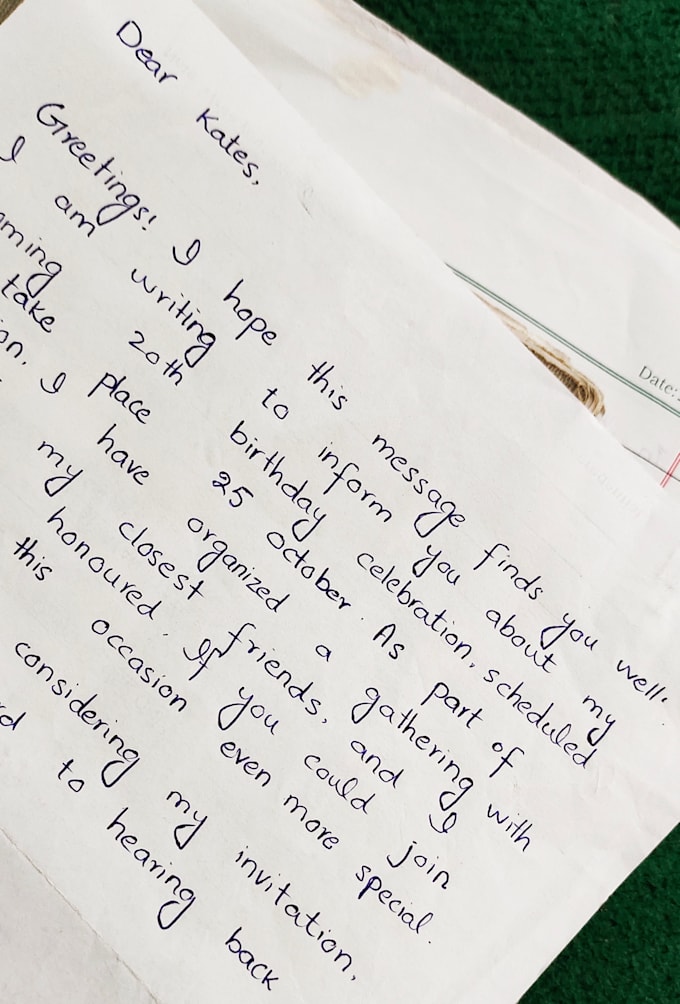 Dear Kates,
Greetings! I hope this message finds you well.
I am writing to inform you about my
ming 20th birthday celebration, scheduled
take place 25 October. As part of
on, I have organized a gathering with
my closest friends, and I
honoured. If you could join
this occasion even more special.
considering my invitation,
rd to hearing back
Date: